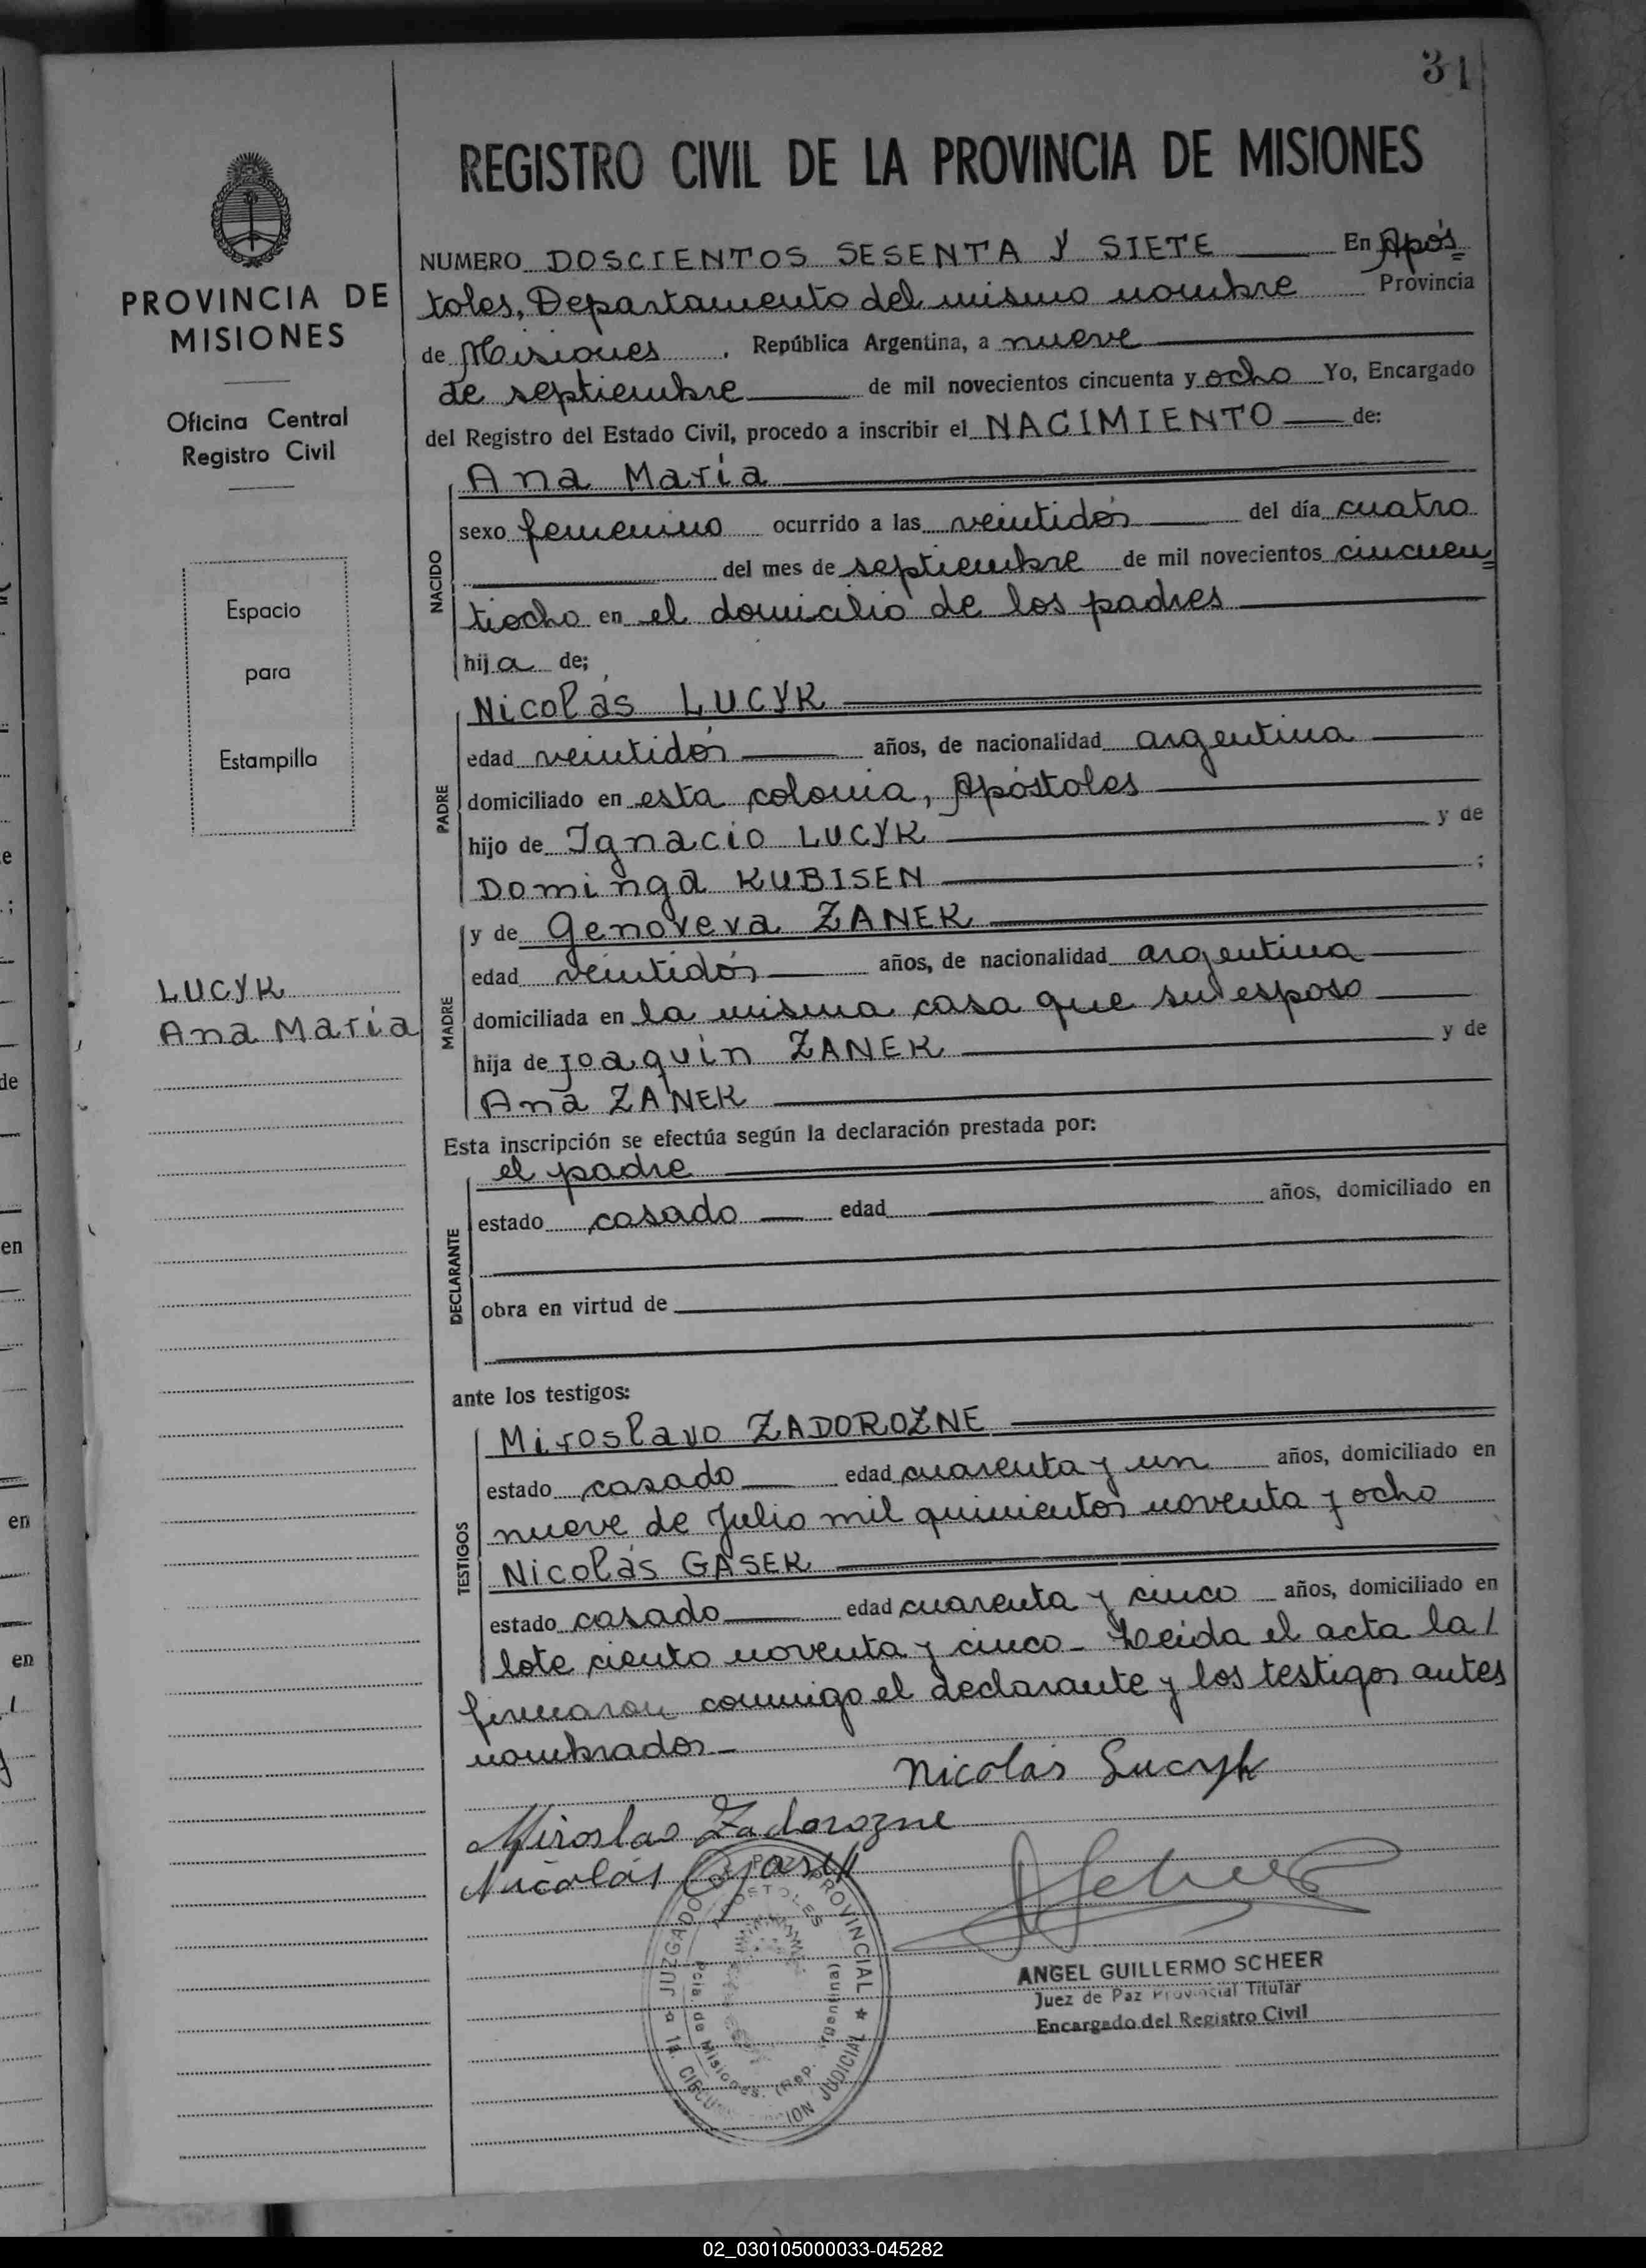 31
REGISTRO CIVIL DE LA PROVINCIA DE MISIONES
PROVINCIA DE
MISIONES
Oficina Central
Registro Civil
Espacio
para
Estampilla
LUCYK
Ana María
NUMERO DOSCIENTOS SESENTA Y SIETE En Após=
toles, Departamento del mismo nombre Provincia
de Misiones, República Argentina, a nueve
de septiembre de mil novecientos cincuenta y ocho Yo, Encargado
del Registro del Estado Civil, procedo a inscribir el NACIMIENTO de:
NACIDO
Ana María
sexo femenino ocurrido a las veintidós del día cuatro
del mes de septiembre de mil novecientos cincuen=
tiocho en el domicilio de los padres
hija de;
PADRE
Nicolás LUCYK
edad veintidós años, de nacionalidad argentina
domiciliado en esta colonia, Apóstoles
hijo de Ignacio LUCYK y de
Dominga KUBISEN ;
MADRE
y de Genoveva ZANEK
edad veintidós años, de nacionalidad argentina
domiciliada en la misma casa que su esposo
hija de Joaquín ZANEK y de
Ana ZANEK
Esta inscripción se efectúa según la declaración prestada por:
DECLARANTE
el padre
estado casado edad años, domiciliado en
obra en virtud de
ante los testigos:
TESTIGOS
Miroslavo ZADOROZNE
estado casado edad cuarenta y un años, domiciliado en
nueve de Julio mil quinientos noventa y ocho
Nicolás GASEK
estado casado edad cuarenta y cinco años, domiciliado en
lote ciento noventa y cinco_ Leída el acta la/
firmaron conmigo el declarante y los testigos antes
nombrados_
Nicolás Lucyk
Miroslao Zadorozne
Nicolás Gasek
JUZGADO DE PAZ PROVINCIAL
APOSTOLES
Pcia. de Misiones. (Rep. Argentina)
1a. CIRCUNSCRIPCION JUDICIAL
ANGEL GUILLERMO SCHEER
Juez de Paz Provincial Titular
Encargado del Registro Civil
02_030105000033-045282